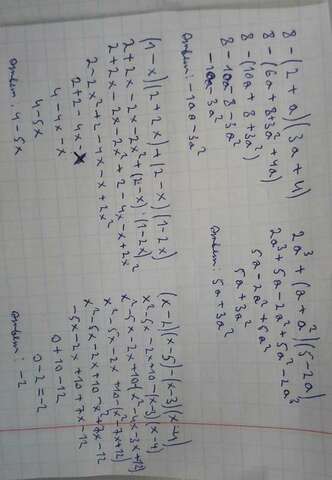 8-(2+a)(3a+4)
8-(6a+8+3a²+4a)
8-(10a+8+3a²)
8-10a-8-3a²
-10a-3a²
Ответ: -10a-3a²
2a³+(a+a²)(5-2a)
2a³+5a-2a²+5a²-2a³
5a-2a²+5a²
5a+3a²
Ответ: 5a+3a²
(1-x)(2+2x)+(2-x)(1-2x)
2+2x-2x-2x²+(2-x)·(1-2x)
2+2x-2x-2x²+2-4x-x+2x²
2-2x²+2-4x-x+2x²
2+2-4x-x
4-4x-x
4-5x
Ответ: 4-5x
(x-2)(x-5)-(x-3)(x-4)
x²-5x-2x+10-(x-3)(x-4)
x²-5x-2x+10-(x²-4x-3x+12)
x²-5x-2x+10-(x²-7x+12)
x²-5x-2x+10-x²+7x-12
-5x-2x+10+7x-12
0+10-12
0-2=-2
Ответ: -2